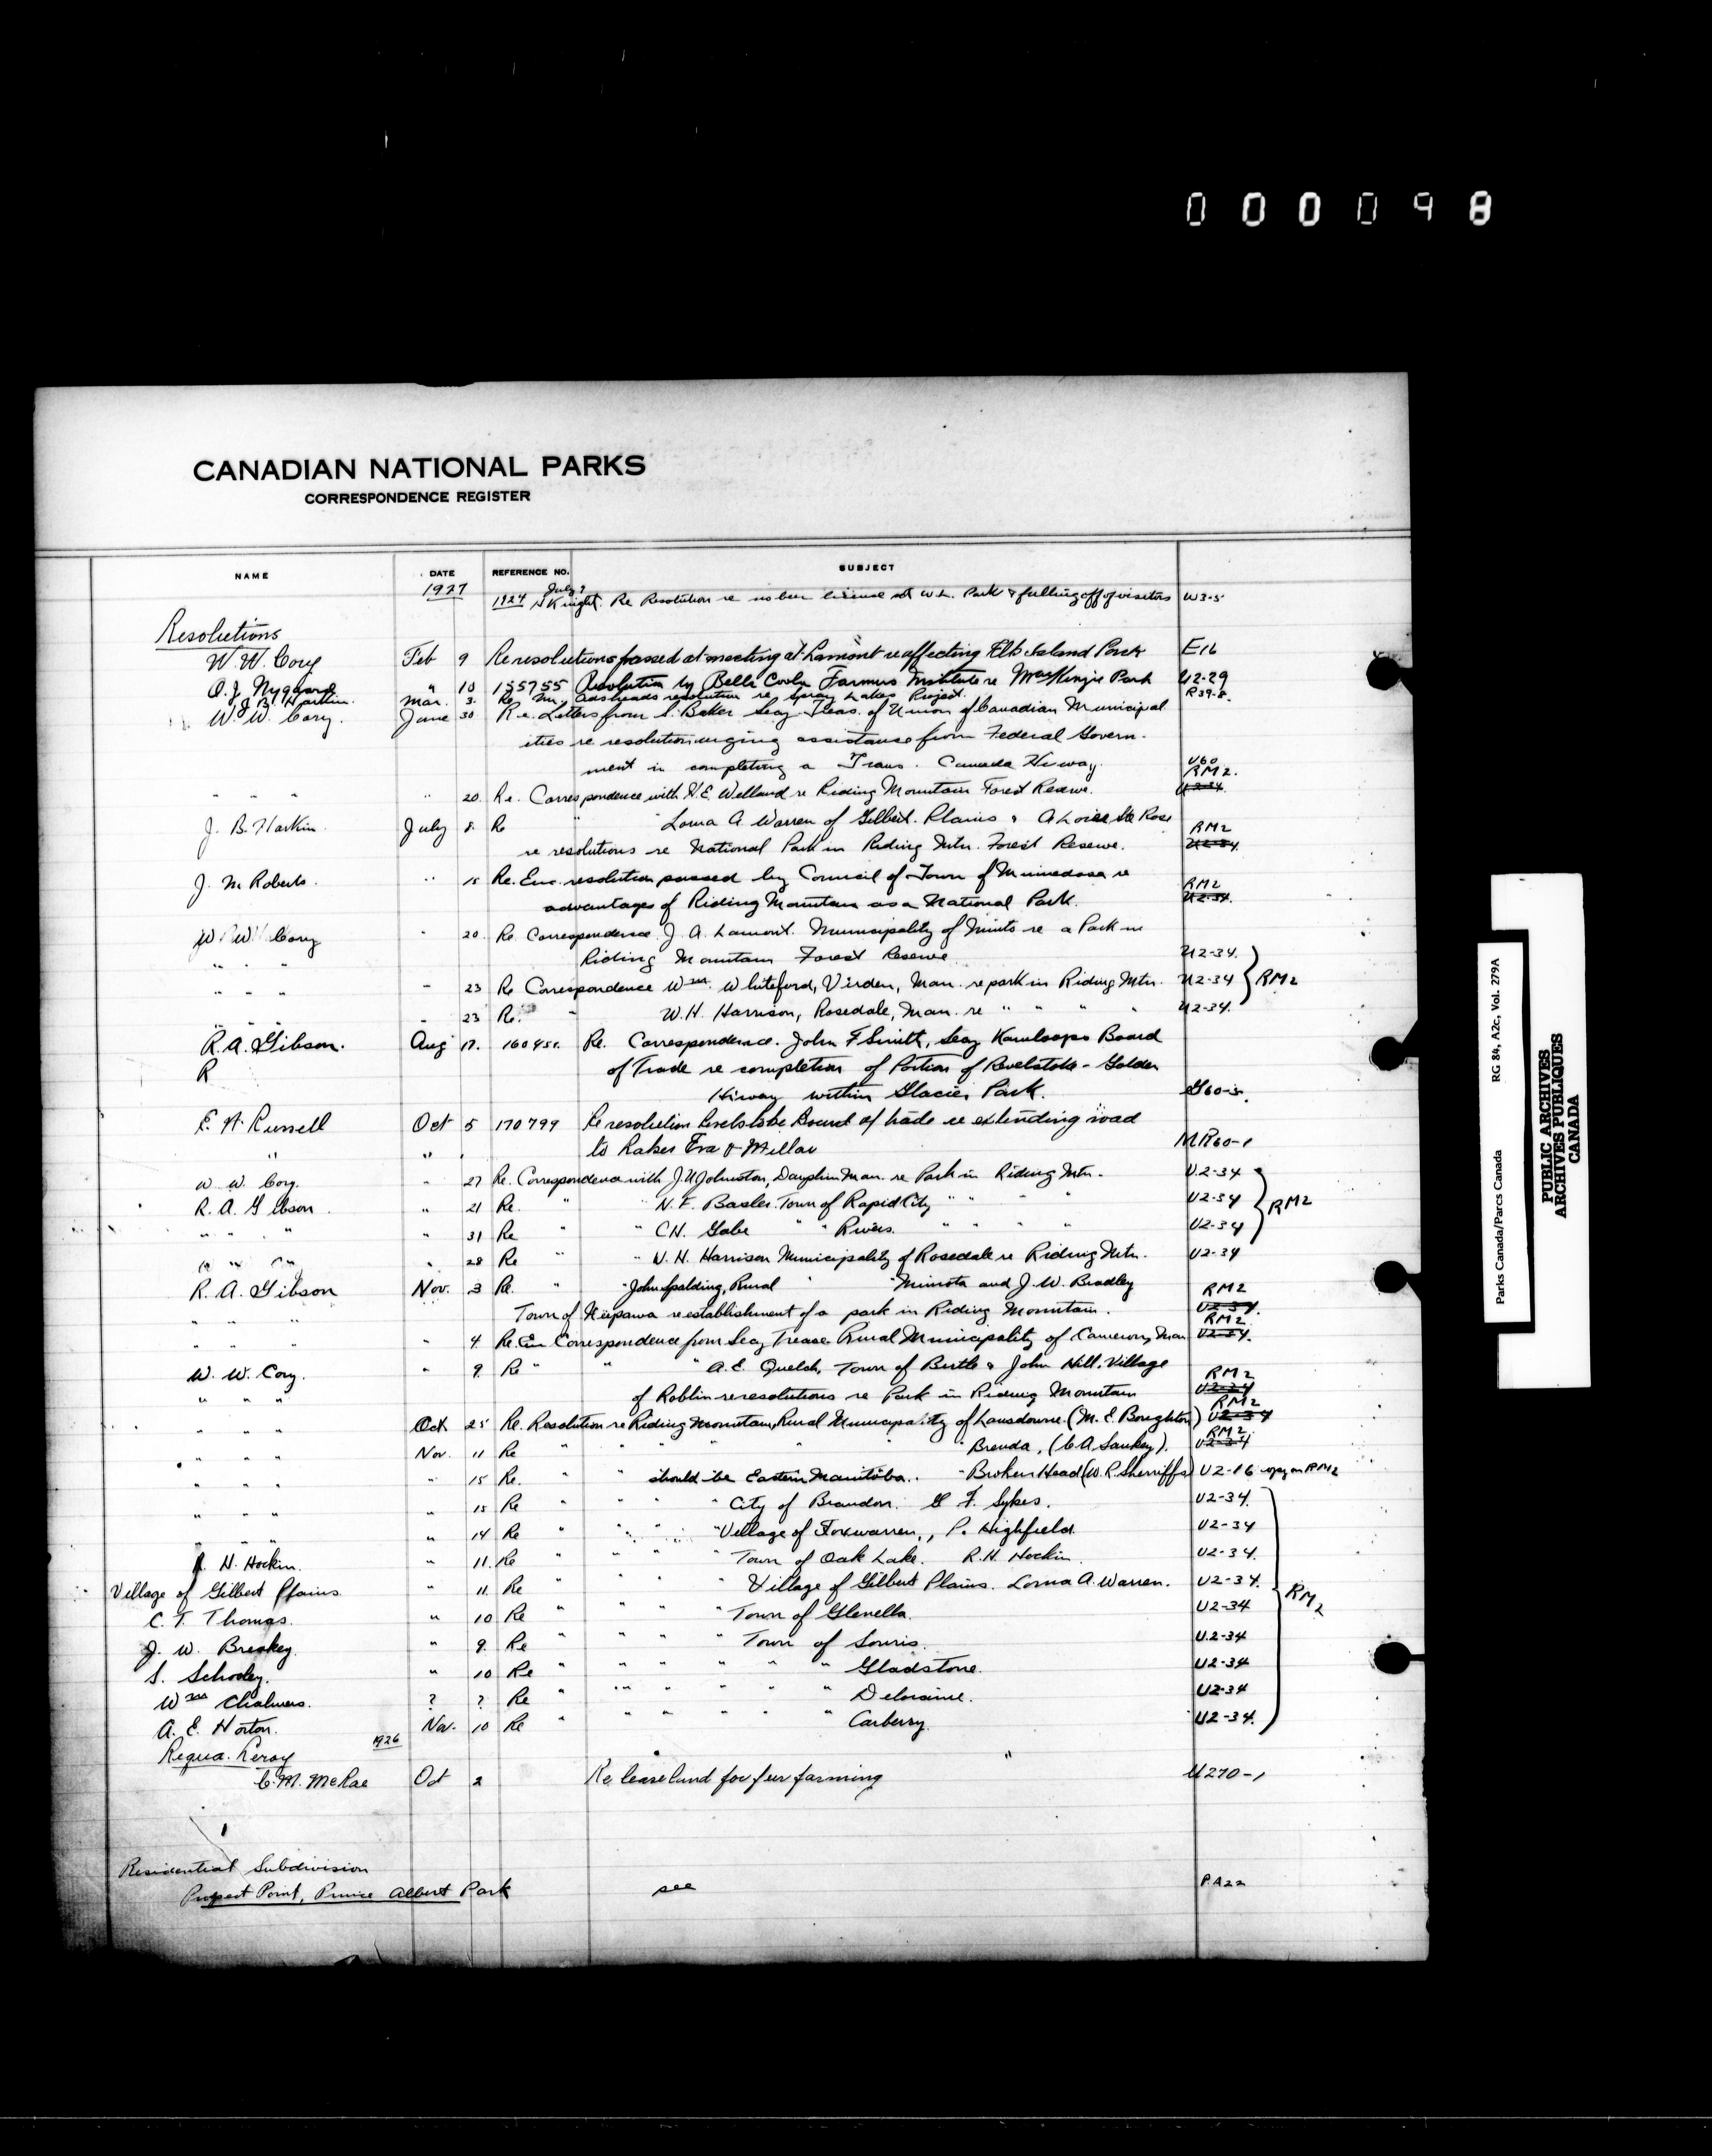 000098
CANADIAN NATIONAL PARKS
CORRESPONDENCE REGISTER
NAME DATE REFERENCE NO. SUBJECT
1927 1924 July 9 Knight. Re Resolution re no beer license at W.L. Park & falling off of visitors W3-5
Resolutions
W. W. Cory Feb 9 Re resolutions passed at meeting at Lamont re affecting Elk Island Park E16
O. J. Nygaard " 10 155755 Resolution by Bella Coola Farmers Institute re MacKenzie Park U2-29
J. B. Harkin. Mar. 3. Re Mr. Adsheads resolution re Spray Lakes Project. R39-8.
W. W. Cory. June 30 Re. Letters from S. Baker Secy Treas. of Union of Canadian Municipal
ities re resolution urging assistance from Federal Govern-
ment in completing a Trans. Canada Hiway. U60
" " " " 20 Re. Correspondence with H.E. Welland re Riding Mountain Forest Reserve. RM2. U2-34.
J. B. Harkin July 8. Re " Lorna A. Warren of Gilbert Plains & Ste Rose
re resolutions re National Park in Riding Mtn. Forest Reserve. RM2 U2-34.
J. M Roberts. " 15 Re. Enc. resolution passed by Council of Town of Minnedosa re
advantages of Riding Mountain as a National Park. RM2 U2-34.
W. W. Cory " 20. Re. Correspondence J. A. Lamont. Municipality of Minto re a Park in
" " " Riding Mountain Forest Reserve. U2-34.
" " " " 23 Re Correspondence Wm. Whiteford, Virden, Man. re park in Riding Mtn. U2-34 RM2
" " " " 23 Re. " W.H. Harrison, Rosedale, Man. re " " " " U2-34.
R. A. Gibson. Aug 17. 160451. Re. Correspondence. John F Smith, Secy Kamloops Board
R of Trade re completion of Portion of Revelstoke - Golden
Hiway within Glacier Park. G60-5.
E. H. Russell Oct 5 170799 Re resolution Revelstoke Board of trade re extending road
" " to Lakes Eva & Millar MR60-1
W. W. Cory. " 27 Re. Correspondence with J.N. Johnston, Dauphin Man. re Park in Riding Mtn. U2-34
R. A. Gibson " 21 Re. " " N. F. Basler. Town of Rapid City " " " " U2-34 RM2
" " " " 31 Re " " C.H. Gabe " " Rivers. " " " " U2-34
" " " 28 Re " " W. H. Harrison Municipality of Rosedale re Riding Mtn. U2-34
R. A. Gibson Nov. 3 Re. " " John Spalding, Rural " " Miniota and J. W. Bradley RM2
" " " Town of Neepawa re establishment of a park in Riding Mountain. U2-34.
" " " " 4 Re. Enc Correspondence from Secy Treas. Rural Municipality of Cameron, Man RM2. U2-34.
W. W. Cory. " 9. Re " " " A. E. Quelch, Town of Birtle & John Hill. Village
" " " of Roblin re resolutions re Park in Riding Mountain RM2 U2-34
" " " Oct 25 Re. Resolution re Riding Mountain, Rural Municipality of Lansdowne. (M. E. Boughton) RM2 U2-34
" " " Nov. 11 Re " " " " " " Brenda, (C. A. Sankey). RM2. U2-34
" " " " 15 Re. " " should be Eastern Manitoba. " Broken Head (W. R. Sherriffs) U2-16 copy on RM2
" " " " 15 Re " " " " City of Brandon. G. F. Sykes. U2-34.
" " " " 14 Re " " " " Village of Foxwarren,, P. Highfield. U2-34
R. H. Hockin. " 11. Re " " " " Town of Oak Lake. R.H. Hockin. U2-34.
Village of Gilbert Plains. " 11. Re " " " " Village of Gilbert Plains. Lorna A. Warren. U2-34. RM2
C. T. Thomas. " 10 Re " " " " Town of Glenella. U2-34
J. W. Breakey. " 9. Re " " " " Town of Souris. U.2-34
S. Schooley. " 10 Re " " " " " " Gladstone. U2-34
Wm Chalmers. ? ? Re " " " " " " Deloraine. U2-34
A. E. Horton. Nov. 10 Re " " " " " " Carberry. U2-34.
Requa. Leroy 1926
C. M. McRae Oct 2 Re lease land for fur farming U270-1
Residential Subdivision
Prospect Point, Prince Albert Park see P.A22
Parks Canada/Parcs Canada RG 84, A2c, Vol. 279A
PUBLIC ARCHIVES
ARCHIVES PUBLIQUES
CANADA